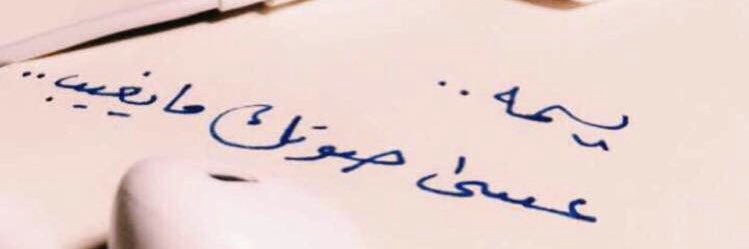 يمه ..
عسى صوتك ما يغيب ..